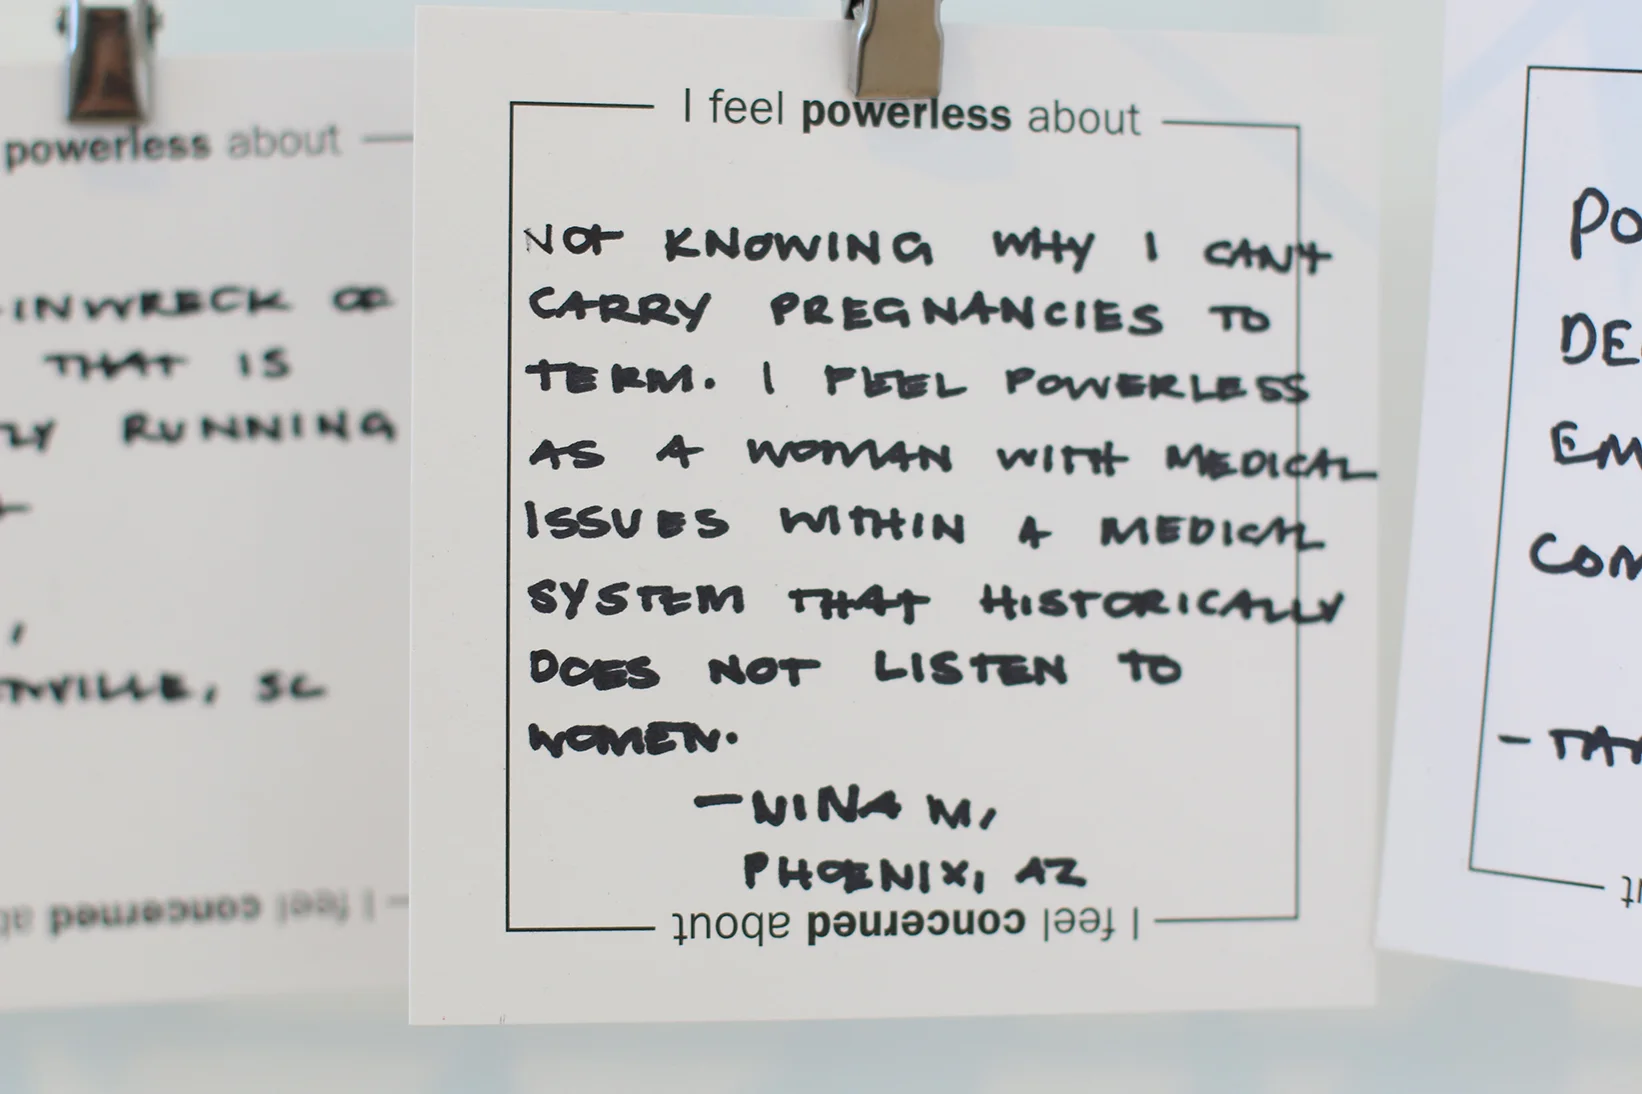 powerless about
INWRECK OR
THAT IS
LY RUNNING
NVILLE, SC
I feel concerned
I feel powerless about
NOT KNOWING WHY I CAN'T
CARRY PREGNANCIES TO
TERM. I FEEL POWERLESS
AS A WOMAN WITH MEDICAL
ISSUES WITHIN A MEDICAL
SYSTEM THAT HISTORICALLY
DOES NOT LISTEN TO
WOMEN.
—NINA M,
PHOENIX, AZ
I feel concerned about
PO
DE
EM
COM
- TA